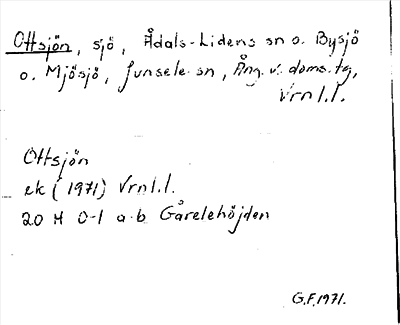 Ottsjön, sjö, Ådals-Lidens sn o. Bysjö
o. Mjösjö, Junsele sn, Ång. v. doms. tg,
Vrnl.l.
Ottsjön
ek (1971) Vrnl.l.
20 H 0-1 a-b Gårelehöjden
G.F. 1971.